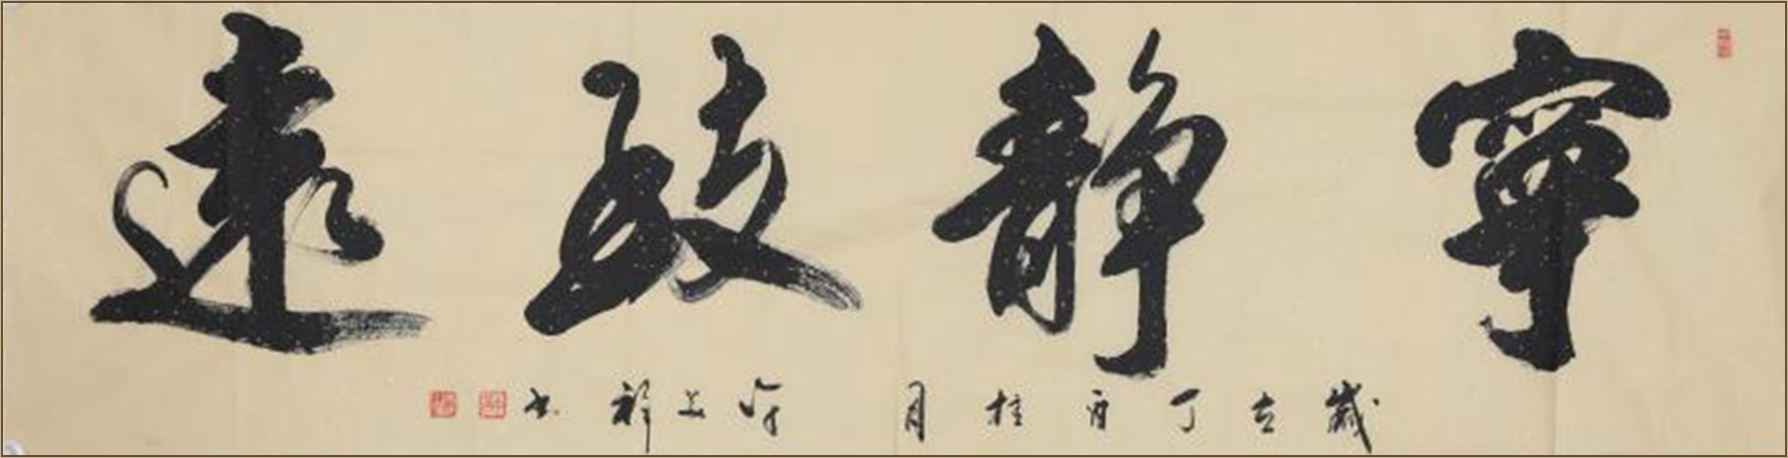 寧静致遠
歲在丁酉桂月 許祥書